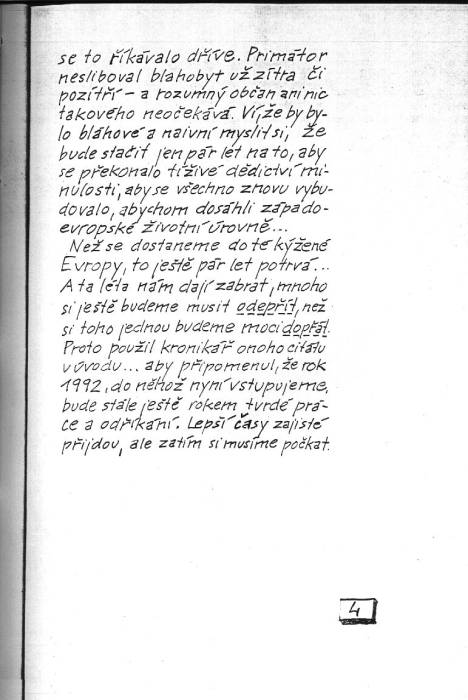 se to říkávalo dříve. Primátor
nesliboval blahobyt už zítra či
pozítří – a rozumný občan ani nic
takového neočekává. Ví, že by by-
lo bláhové a naivní myslit si, že
bude stačit jen pár let na to, aby
se překonalo tíživé dědictví mi-
nulosti, aby se všechno znovu vybu-
dovalo, abychom dosáhli západo-
evropské životní úrovně...
Než se dostaneme do té kýžené
Evropy, to ještě pár let potrvá...
A ta léta nám dají zabrat, mnoho
si ještě budeme musit odepřít, než
si toho jednou budeme moci dopřát.
Proto použil kronikář onoho citátu
v úvodu... aby připomenul, že rok
1992, do něhož nyní vstupujeme,
bude stále ještě rokem tvrdé prá-
ce a odříkání. Lepší časy zajisté
přijdou, ale zatím si musíme počkat.
4